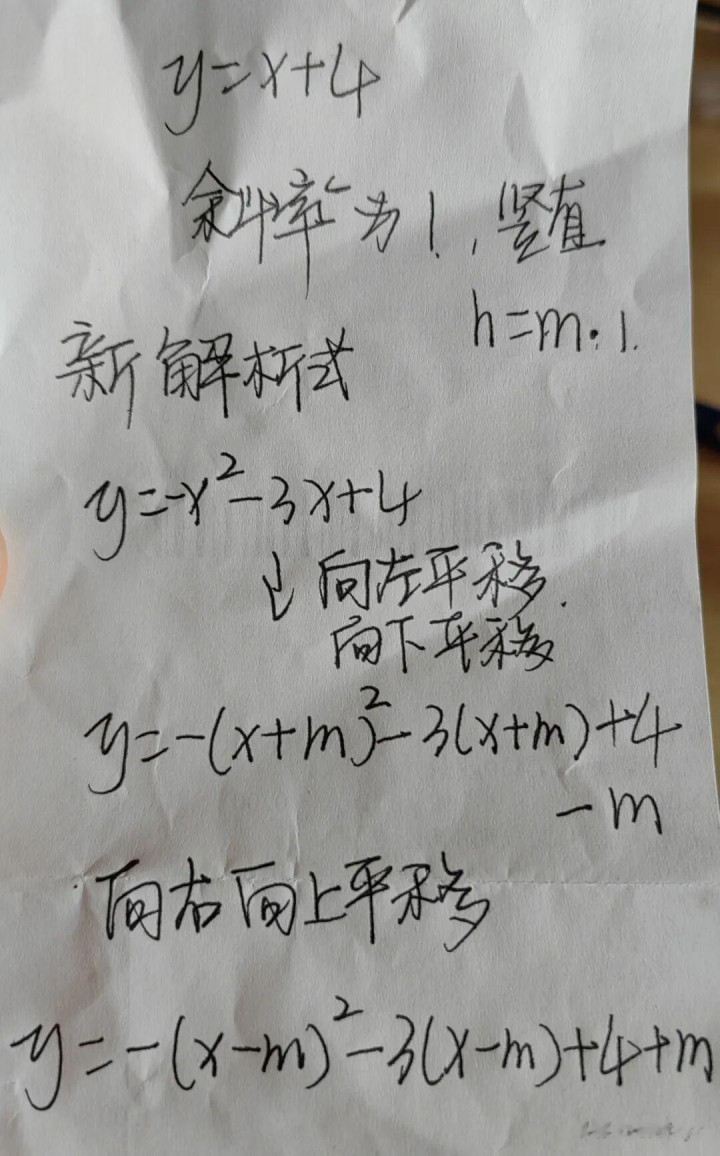 y=x+4
斜率为1,竖直
h=m·1.
新解析式
y=-x²-3x+4
↓向左平移.
向下平移
y=-(x+m)²-3(x+m)+4
-m
向右向上平移
y=-(x-m)²-3(x-m)+4+m